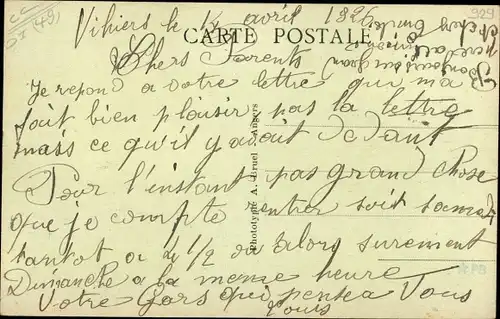 CC
DI (49)
929
Vihiers le 12 avril
CARTE POSTALE
Chers Parents
Je repond a votre lettre qui m'a
fait bien plaisir pas la lettre
mais ce qu'il y avait dedant
Pour l'instant pas grand chose
que je compte rentrer soit samedi
tantot a 4 1/2 ou alors surement
Dimanche a la meme heure
Votre Gars qui pensea Vous
Tours
Phototypie A. Bruel Angers